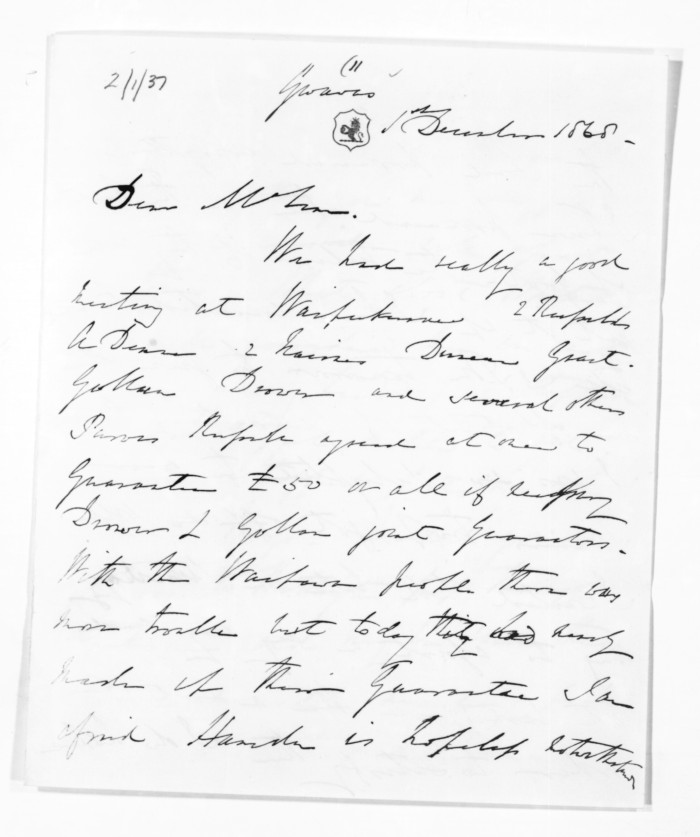 2/1/37
(11
Gwavas
1st December 1868.
Dear McLean.
We had really a good
meeting at Waipukurau 2 Russells
A Deane 2 Nairns Duncan Grant.
Gollan Drower and several others
Purvis Russell agreed at once to
Guarantee £50 or all if necessary
Drower & Gollan joint Guarantors.
With the Waipawa people there was
more trouble but today they had nearly
made up their Guarantee I am
afraid is hopeless